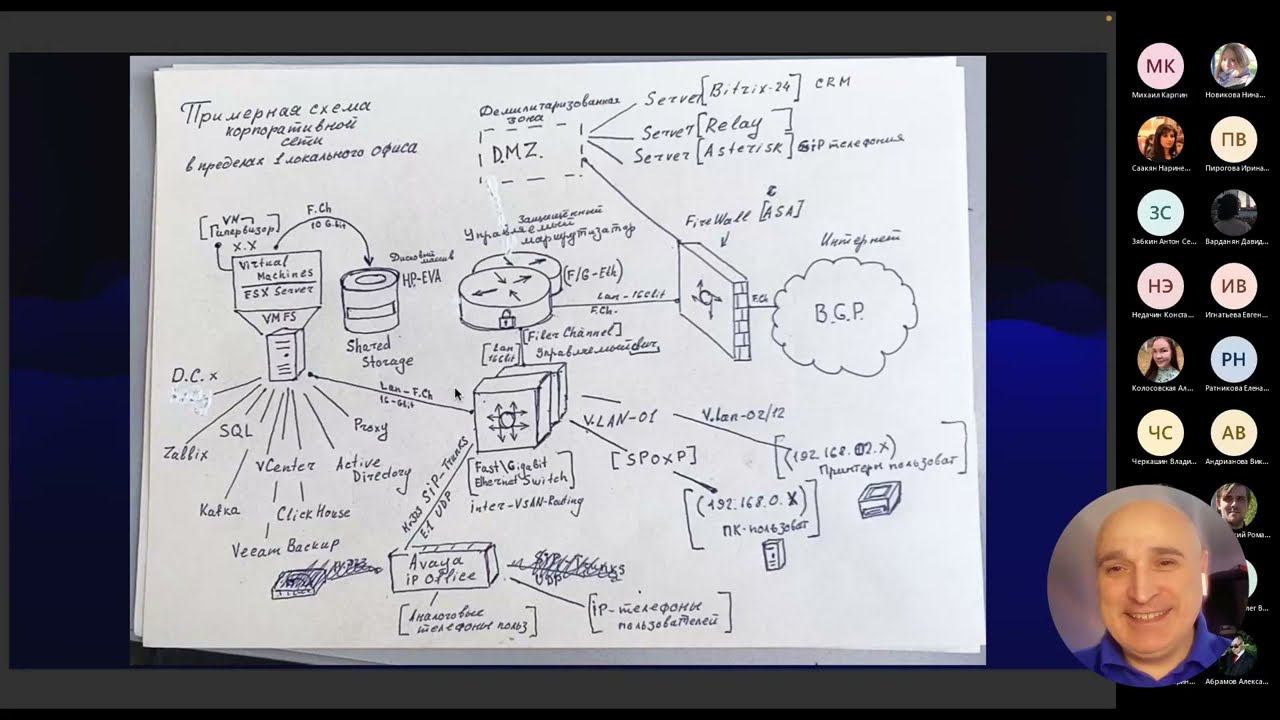 Примерная схема
корпоративной
сети
в пределах 1 локального офиса
Демилитаризованная
зона
D.M.Z.
Server [Bitrix-24] CRM
Server [Relay]
Server [Asterisk] SiP телефония
FireWall [ASA]
Интернет
B.G.P.
F.Ch
[VM
Гипервизор]
X.X
F.Ch
10 G-bit
Virtual
Machines
ESX Server
VMFS
Дисковый
массив
HP-EVA
Shared
Storage
Защищённый
Управляемый
маршрутизатор
(F/G-Eth)
Lan-1Gbit
F.Ch.
[Lan
1Gbit]
[Fiber Channel]
Управляемый свич
D.C. x
Lan-F.Ch
1G-Gbit
Zabbix
SQL
Proxy
vCenter
Active
Directory
Kafka
ClickHouse
Veeam Backup
[Fast\Gigabit
Ethernet Switch]
SiP-Trunks
E-1 UDP
V.LAN-01
V.Lan-02/12
[SPOXP]
(192.168.02.X)
Принтеры пользоват]
[(192.168.0.X)
ПК-пользоват]
Avaya
iP Office
UDP
[Аналоговые
телефоны польз]
[iP-телефоны
пользователей]
МК
Михаил Карпин
Новикова Нина...
Саакян Нарине...
ПВ
Пирогова Ирина...
ЗС
Зябкин Антон Се...
Варданян Давид...
НЭ
Недачин Конста...
ИВ
Игнатьева Евген...
Колосовская Ал...
РН
Ратникова Елена...
ЧС
Черкашин Влади...
АВ
Андрианова Вик...
Абрамов Алекса...